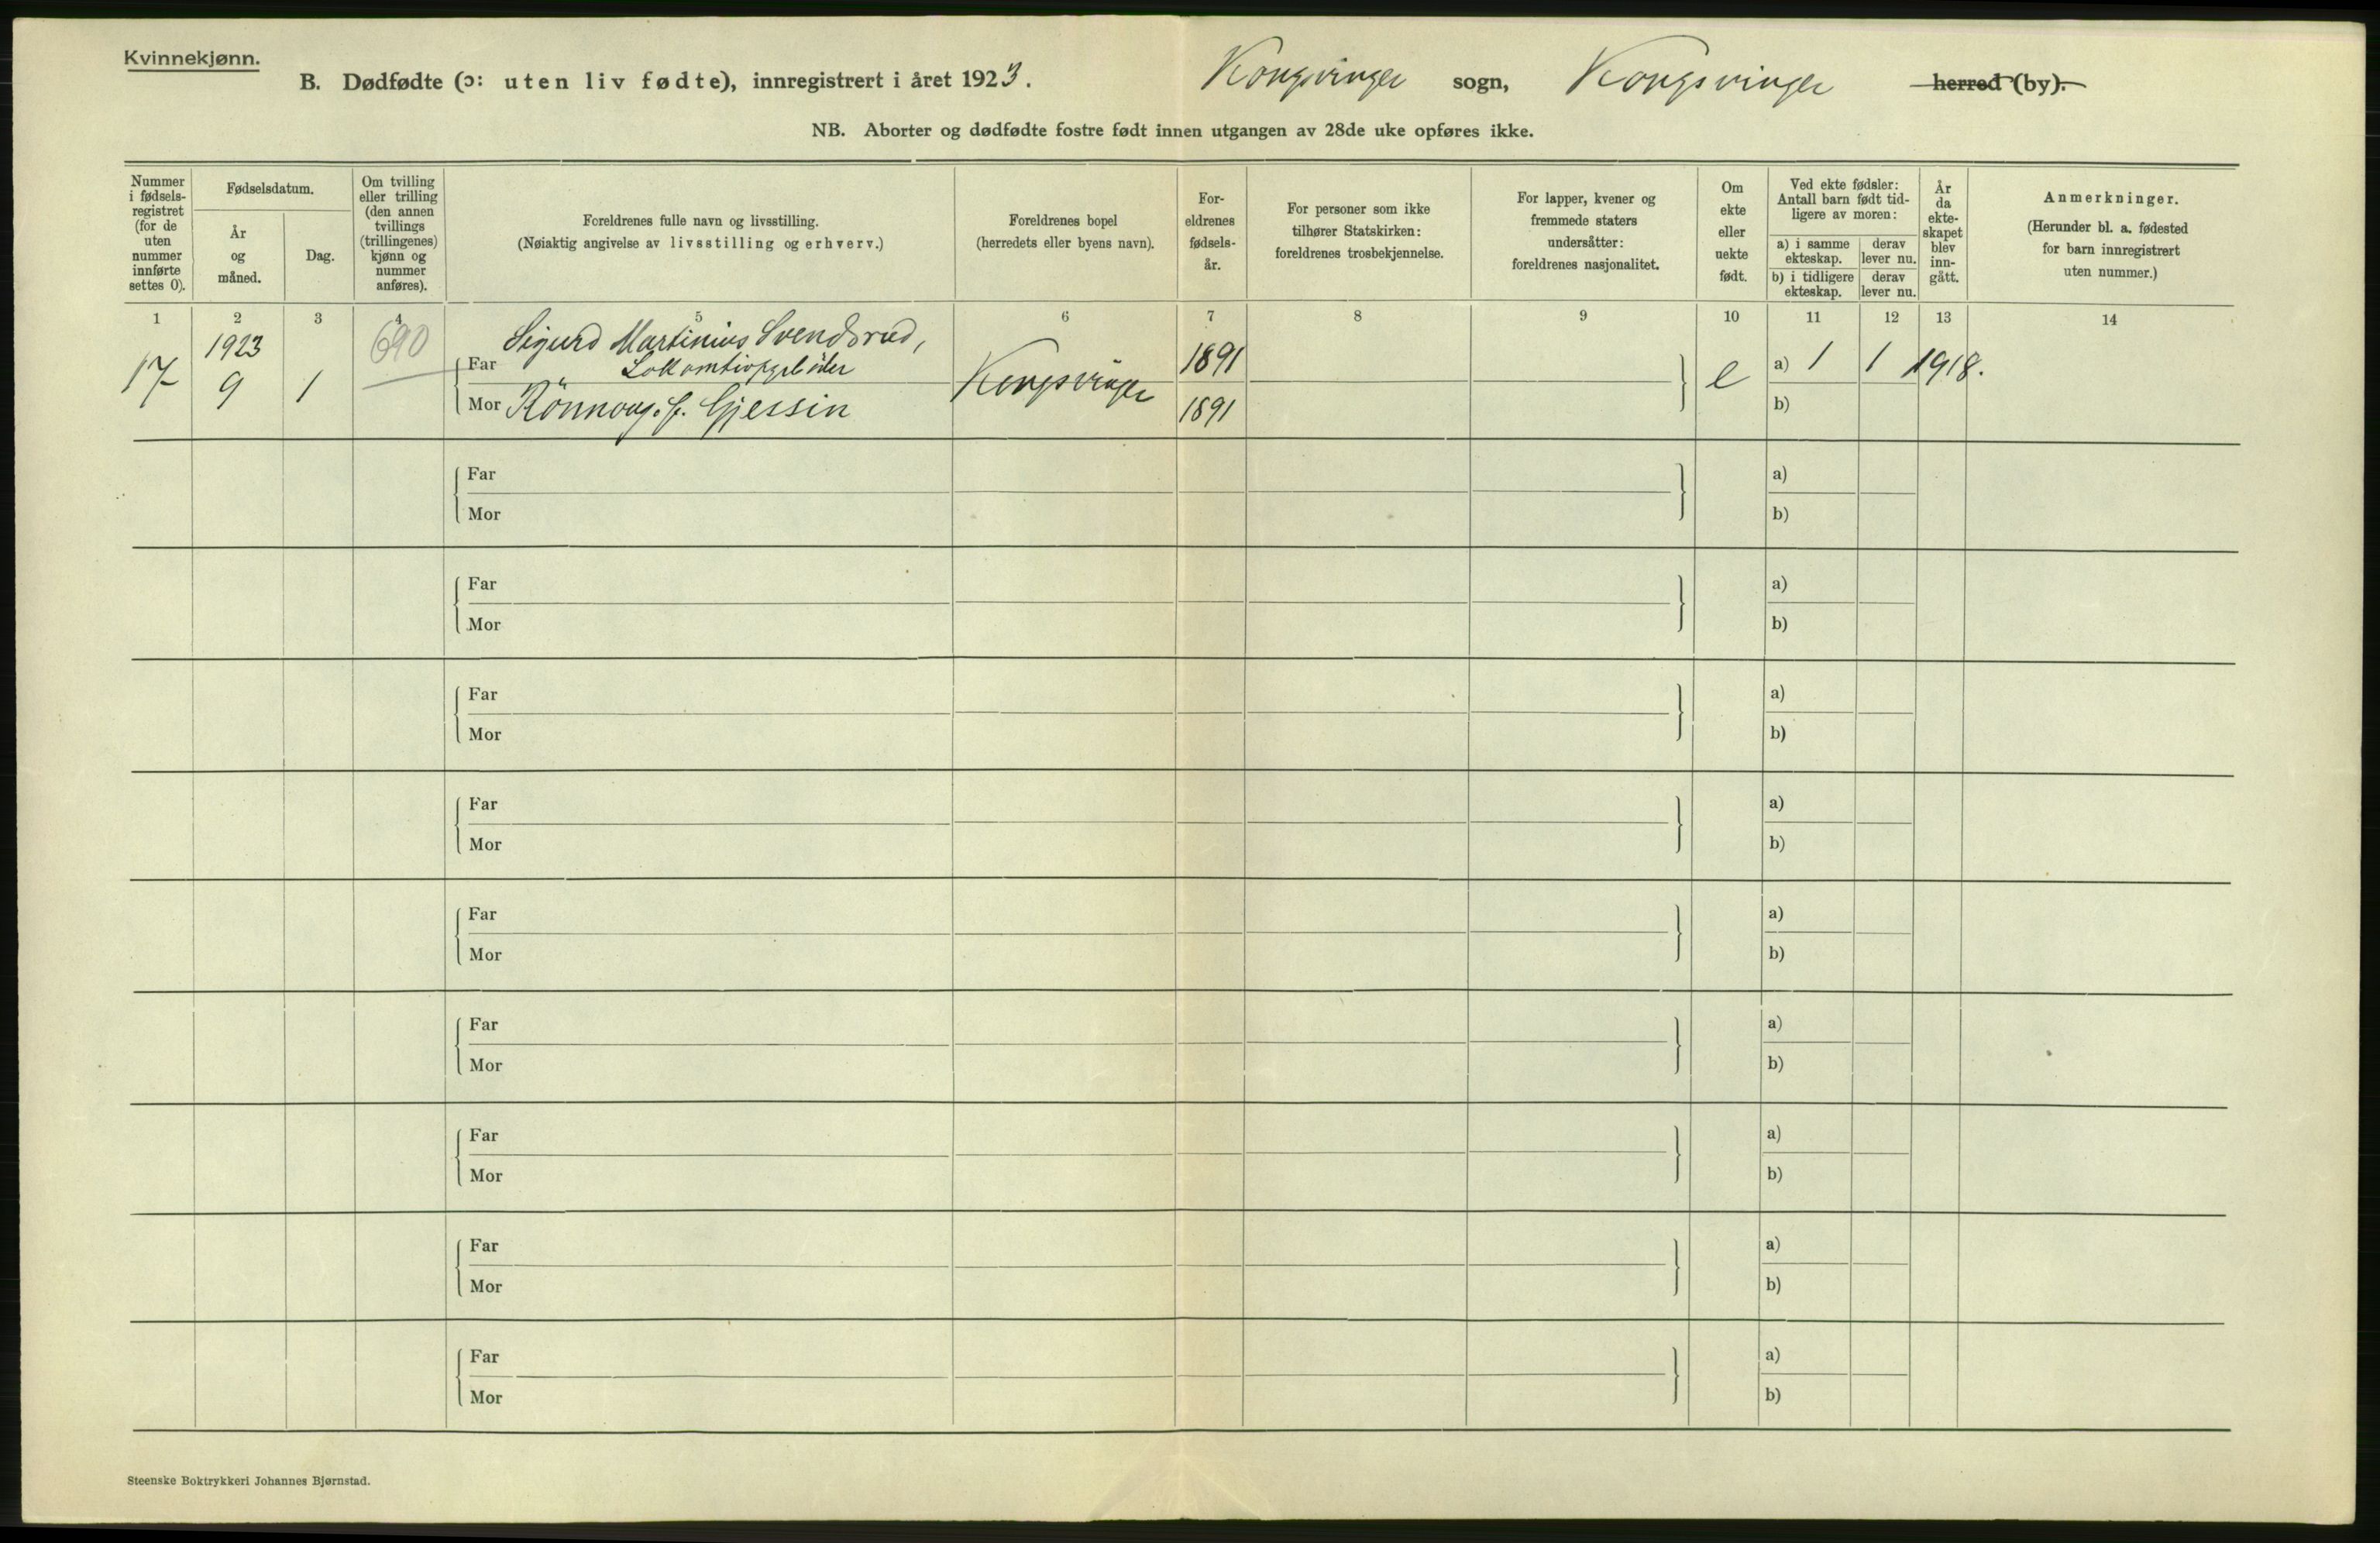 Kvinnekjønn.
B. Dødfødte (ɔ: uten liv fødte), innregistrert i året 1923. Kongsvinger sogn, Kongsvinger herred (by).
NB. Aborter og dødfødte fostre født innen utgangen av 28de uke opføres ikke.
Nummer i fødsels-registret (for de uten nummer innførte settes 0).
Fødselsdatum.
År og måned.
Dag.
Om tvilling eller trilling (den annen tvillings (trillingenes) kjønn og nummer anføres).
Foreldrenes fulle navn og livsstilling.
(Nøiaktig angivelse av livsstilling og erhverv.)
Foreldrenes bopel
(herredets eller byens navn).
For-eldrenes fødsels-år.
For personer som ikke tilhører Statskirken: foreldrenes trosbekjennelse.
For lapper, kvener og fremmede staters undersåtter: foreldrenes nasjonalitet.
Om ekte eller uekte født.
Ved ekte fødsler: Antall barn født tid-ligere av moren:
a) i samme ekteskap.
derav lever nu.
b) i tidligere ekteskap.
derav lever nu.
År da ekte-skapet blev inn-gått.
Anmerkninger.
(Herunder bl. a. fødested for barn innregistrert uten nummer.)
1 2 3 4 5 6 7 8 9 10 11 12 13 14
1923 690 Sigurd Martinius Svendsrud,
17 9 1 Far Kongsvinger 1891 e a) 1 1 1918.
Mor Rönnoug f. Gjessin 1891 b)
Far a)
Mor b)
Far a)
Mor b)
Far a)
Mor b)
Far a)
Mor b)
Far a)
Mor b)
Far a)
Mor b)
Far a)
Mor b)
Far a)
Mor b)
Far a)
Mor b)
Steenske Boktrykkeri Johannes Bjørnstad.